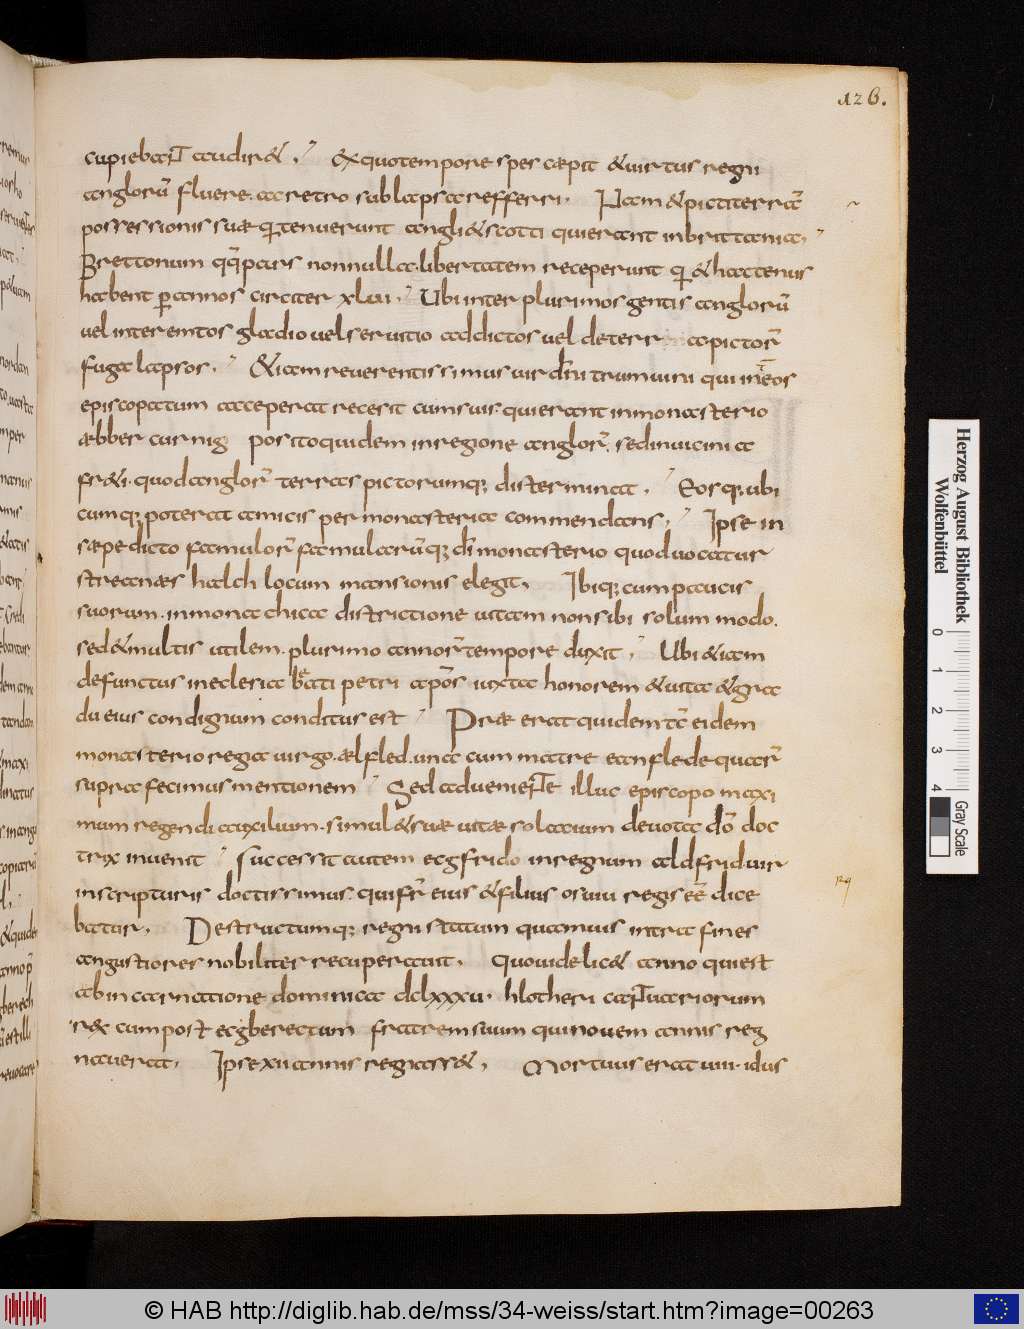 126.
cupiebant audiret. Ex quo tempore spes cæpit & uirtus regni
anglorũ fluere. ac retro sublapsa refferri. Nam & picti terrã
possessionis suæ q̃ tenuerunt angli & scotti qui erant in brittania.
Brettonum q̃q̃ pars nonnulla. libertatem receperunt q̃ & hactenus
habent p annos circiter xlui. Ubi inter plurimos gentis anglorũ
uel interemtos gladio uel seruitio addictos uel de terra pictor̃
fuga lapsos. & iam reuerentissimus uir dñi trumuini qui in eos
episcopatum acceperat recesit cum suis. qui erant in monasterio
æbber curnig posito quidem in regione anglor̃. sed in uicinia
fr&i. quod anglor̃ terras pictorumq; disterminat. Eos q; ubi
cumq; poterat amicis per monasteria commendans. Ipse in
sæpe dicto famulor̃ famularũq; dĩ monasterio quod uocatur
streanæs halch locum mansionis elegit. Ibiq; cum paucis
suorum. in monachica districtione uitam non sibi solum modo.
sed & multis utilem. plurimo annor̃ tempore duxit. Ubi & iam
defunctus in eclesia bẽati petri apõs iuxta honorem & uita & gra
du eius condignum conditus est Præ erat quidem tc̃ eidem
monasterio regia uirgo. ælfled. una cum matre eanflede quar̃
supra fecimus mentionem Sed adueniente illuc episcopo maxi
mum regendi auxilium. simul & suæ uitæ solacium deuota dõ doc
trix inuenit Successit autem ecgfrido in regnum aldfrid uir
in scripturis doctissimus. qui fr̃ eius & filius osuiu regis eẽ dice
batur. Destructumq; regni statum quamuis intra fines
angustiores nobiliter recuperauit. Quo uidelic& anno qui est
ab incarnatione dominica dclxxxu. hlotheri cantuariorum
rex cum post ecgberectum fratrem suum qui nouem annis reg
nauerat. Ipse xii annis regnass&. Mortuus erat uiii. idus
Herzog August Bibliothek
Wolfenbüttel
0 1 2 3 4
Gray Scale
© HAB http://diglib.hab.de/mss/34-weiss/start.htm?image=00263